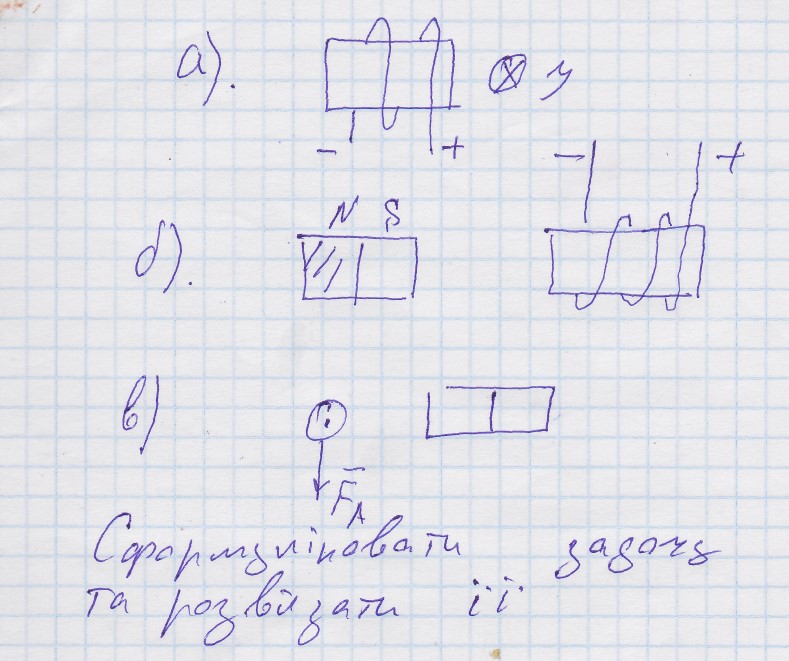 а).
⊗ у
- +
- +
N S
б).
в)
F̄A
Сформулювати задачу
та розв'язати її